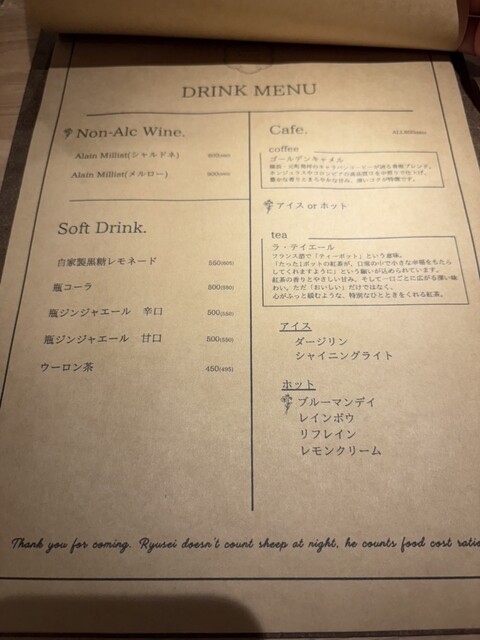 DRINK MENU
Non-Alc Wine.
Alain Milliat(シャルドネ) 900(990)
Alain Milliat(メルロー) 900(990)
Soft Drink.
自家製黒糖レモネード 550(605)
瓶コーラ 500(550)
瓶ジンジャエール 辛口 500(550)
瓶ジンジャエール 甘口 500(550)
ウーロン茶 450(495)
Cafe.
ALL 600(660)
coffee
ゴールデンキャメル
アイス or ホット
tea
ラ・テイエール
フランス語で「ティーポット」という意味。
「たった1ポットの紅茶が、口家の中で小さな幸福をもたら
してくれますように」という願いが込められています。
紅茶の香りとやさしい甘み。そして一口ごとに広がる深い味
わい。ただ「おいしい」だけではなく、
心がふっと緩むような、特別なひとときをくれる紅茶。
アイス
ダージリン
シャイニングライト
ホット
ブルーマンデイ
レインボウ
リフレイン
レモンクリーム
Thank you for coming. Ryusei doesn't count sheep at night, he counts food cost ratio